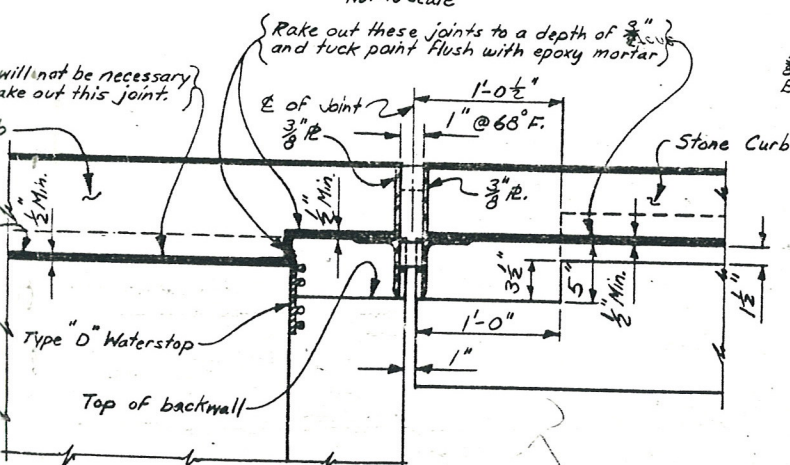 Not to Scale
Rake out these joints to a depth of 3/4"
and tuck point flush with epoxy mortar
will not be necessary
ake out this joint.
℄ of Joint
1'-0½"
3/8" ℙ
1" @ 68° F.
Stone Curb
½" Min.
½" Min.
3/8" ℙ.
3½"
5"
½" Min.
1½"
Type "D" Waterstop
1'-0"
1"
Top of backwall